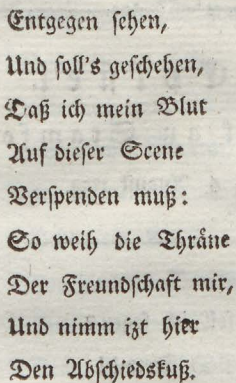 Entgegen ſehen,
Und ſoll's geſchehen,
Daß ich mein Blut
Auf dieſer Scene
Verſpenden muß:
So weih die Thräne
Der Freundſchaft mir,
Und nimm izt hier
Den Abſchiedskuß.